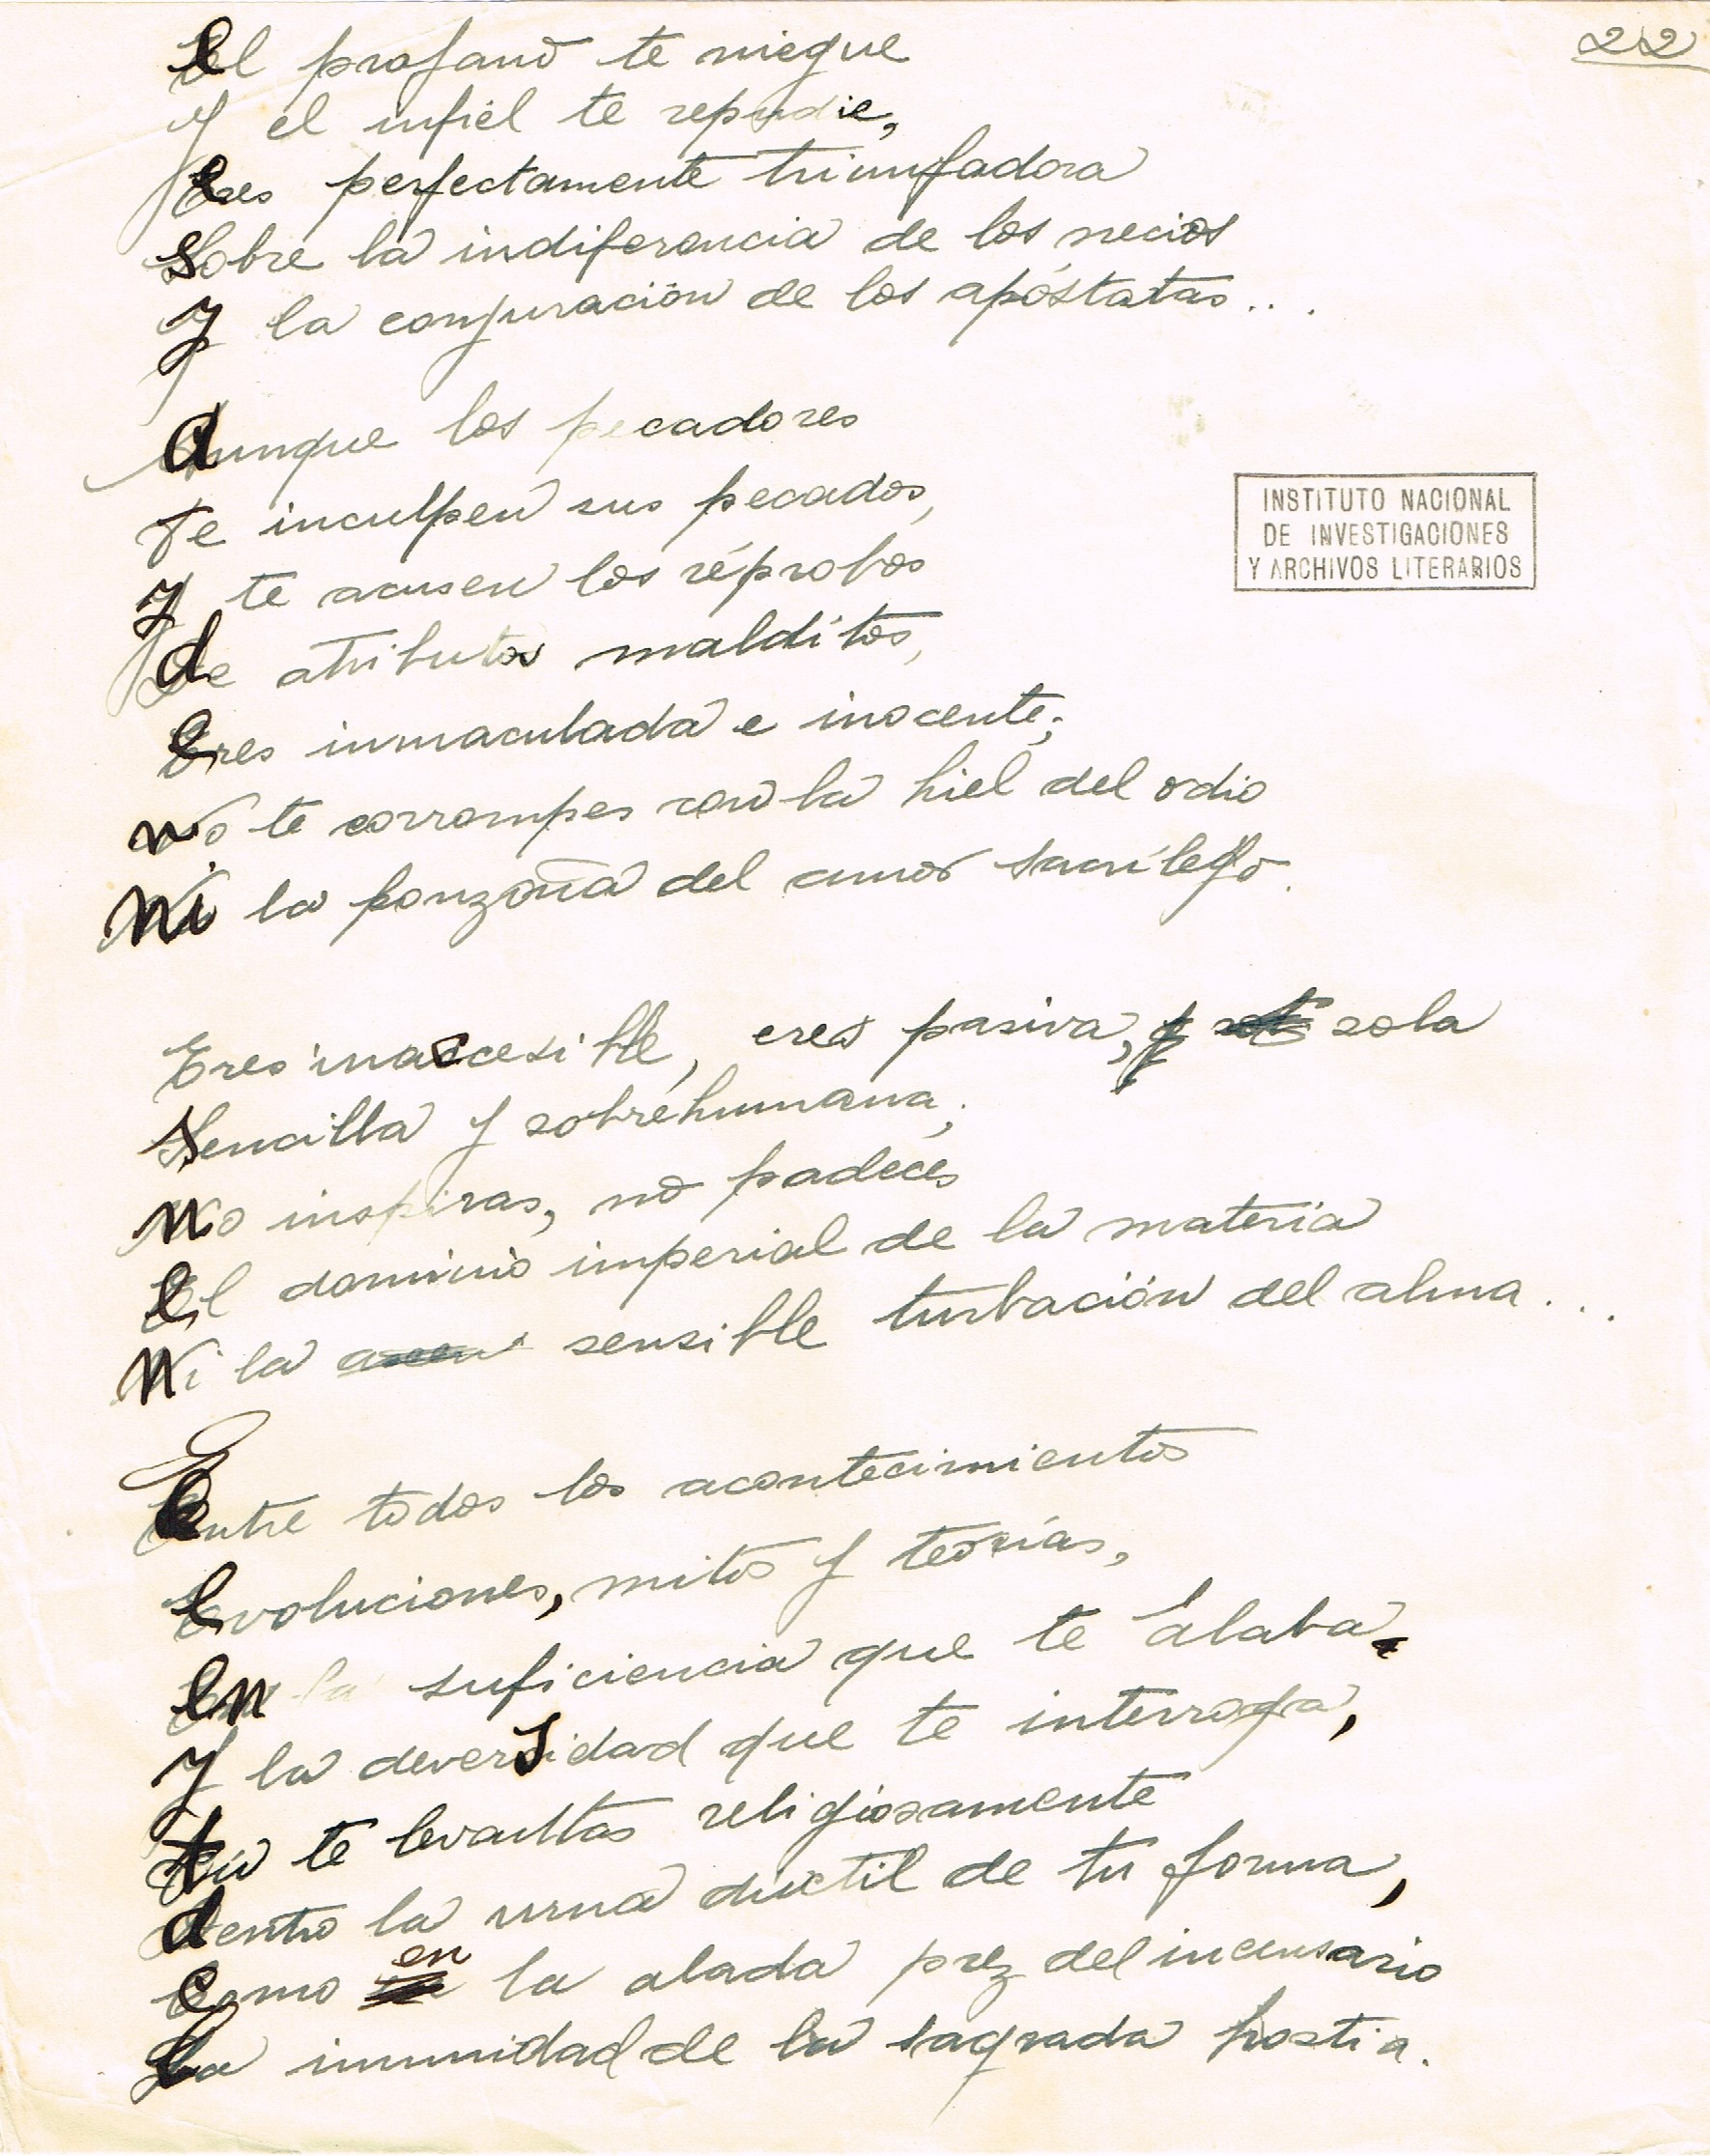 22
el profano te niegue
Y el infiel te repudie,
eres perfectamente triunfadora
sobre la indiferencia de los necios
y la conjuración de los apóstatas...
Aunque los pecadores
te inculpen sus pecados,
y te acusen los réprobos
de atributos malditos,
eres inmaculada e inocente;
no te corrompes con la hiel del odio
ni la ponzoña del amor sacrílego.
INSTITUTO NACIONAL
DE INVESTIGACIONES
Y ARCHIVOS LITERARIOS
Eres inaccesible, eres pasiva, sola
sencilla y sobrehumana;
no inspiras, no padeces
el dominio imperial de la materia
ni la sensible turbación del alma...
Entre todos los acontecimientos
evoluciones, mitos y teorías,
en la suficiencia que te alaba
y la deversidad que te interroga,
tú te levantas religiosamente
dentro la urna dúctil de tu forma,
como en la alada prez del incensario
La inmunidad de la sagrada hostia.